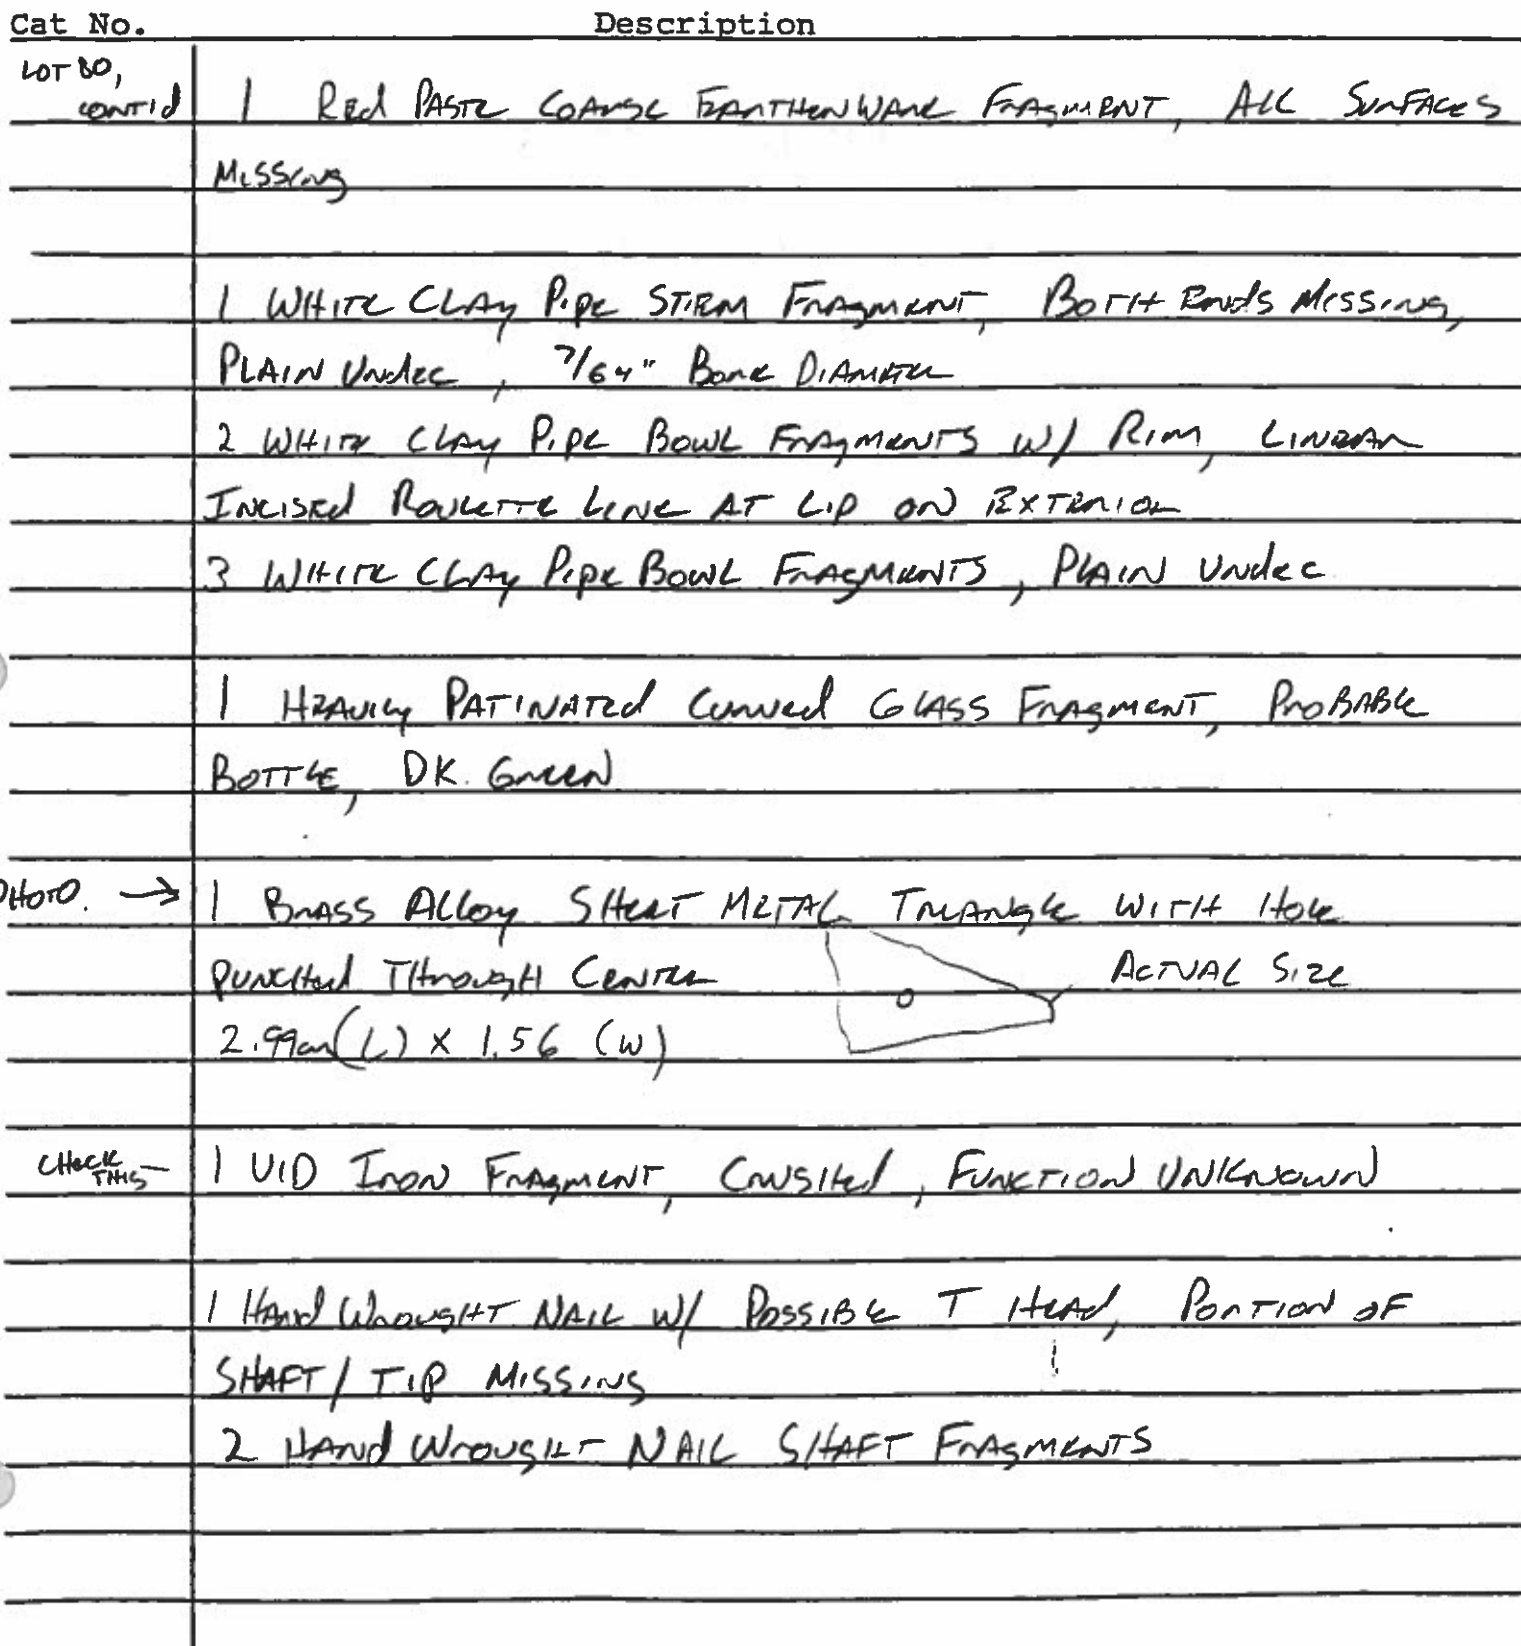 Cat No. Description
LOT 80,
CONT'd 1 Red PASTE COARSE EARTHENWARE FRAGMENT, ALL SURFACES
MISSING
1 WHITE CLAY PIPE STEM FRAGMENT, BOTH ENDS MISSING,
PLAIN UNdec, 7/64" BORE DIAMETER
2 WHITE CLAY PIPE BOWL FRAGMENTS W/ RIM, LINEAR
INCISED ROULETTE LINE AT LIP ON EXTERIOR
3 WHITE CLAY PIPE BOWL FRAGMENTS, PLAIN UNdec
1 HEAVILY PATINATEd CURVEd GLASS FRAGMENT, PROBABLE
BOTTLE, DK. GREEN
PHOTO. → 1 BRASS ALLOY SHEET METAL TRIANGLE WITH HOLE
PUNCHEd THROUGH CENTER ACTUAL SIZE
2.99cm (L) X 1.56 (W)
CHECK
THIS — 1 UID IRON FRAGMENT, CRUSHEd, FUNCTION UNKNOWN
1 HANd WROUGHT NAIL W/ POSSIBLE T HEAd, PORTION OF
SHAFT / TIP MISSING
2 HANd WROUGHT NAIL SHAFT FRAGMENTS